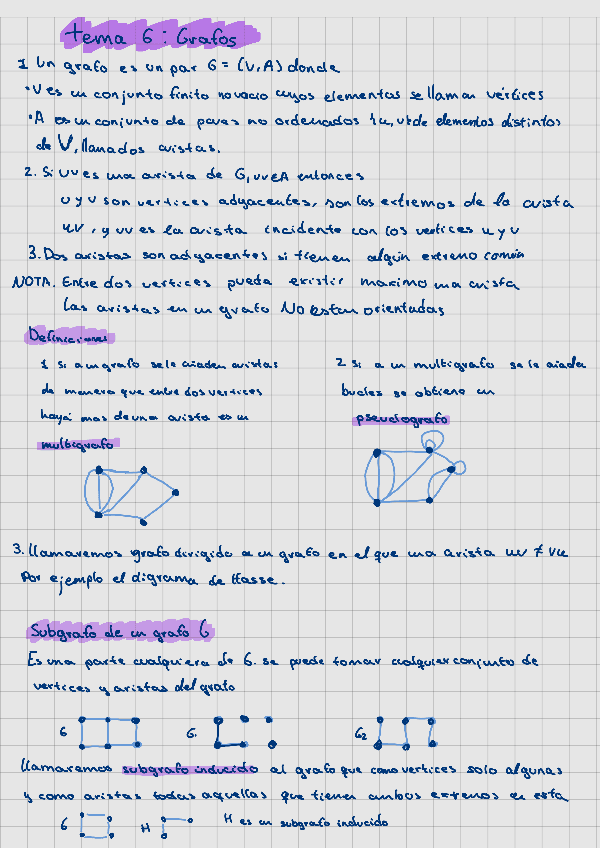 tema 6: Grafos
1 Un grafo es un par G = (V, A) donde
• V es un conjunto finito no vacio cuyos elementos se llaman vértices
• A es un conjunto de pares no ordenados {u, v} de elementos distintos
de V, llamados aristas.
2. Si uv es una arista de G, uv∈A entonces
u y v son vertices adyacentes, son los extremos de la arista
uv, y uv es la arista incidente con los vertices u y v
3. Dos aristas son adyacentes si tienen algún extremo común
NOTA. Entre dos vertices puede existir maximo una arista
Las aristas en un grafo NO estan orientadas
Definiciones
1 Si a un grafo se le añaden aristas
de manera que entre dos vertices
haya mas de una arista es un
multigrafo
2 Si a un multigrafo se le añade
bucles se obtiene un
pseudografo
3. llamaremos grafo dirigido a un grafo en el que una arista uv ≠ vu
Por ejemplo el digrama de Hasse.
Subgrafo de un grafo G
Es una parte cualquiera de G. se puede tomar cualquier conjunto de
vertices y aristas del grafo
G G1 G2
llamaremos subgrafo inducido al grafo que como vertices solo algunas
y como aristas todas aquellas que tienen ambos extremos en esta
G H H es un subgrafo inducido